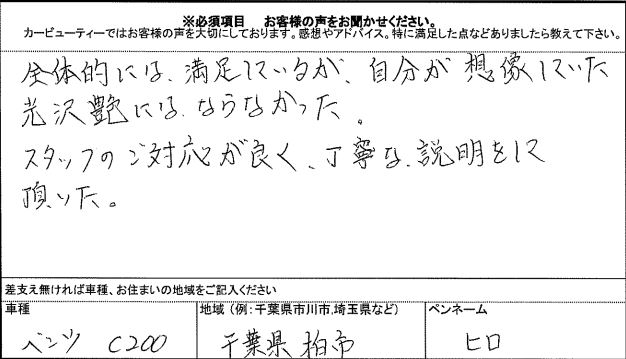 ※必須項目　お客様の声をお聞かせください。
カービューティーではお客様の声を大切にしております。感想やアドバイス。特に満足した点などありましたら教えて下さい。
全体的には、満足しているが、自分が想像していた
光沢艶には、ならなかった。
スタッフのご対応が良く、丁寧な、説明をして
頂いた。
差支え無ければ車種、お住まいの地域をご記入ください
車種　地域（例：千葉県市川市,埼玉県など）　ペンネーム
ベンツ　C200　千葉県　柏市　ヒロ